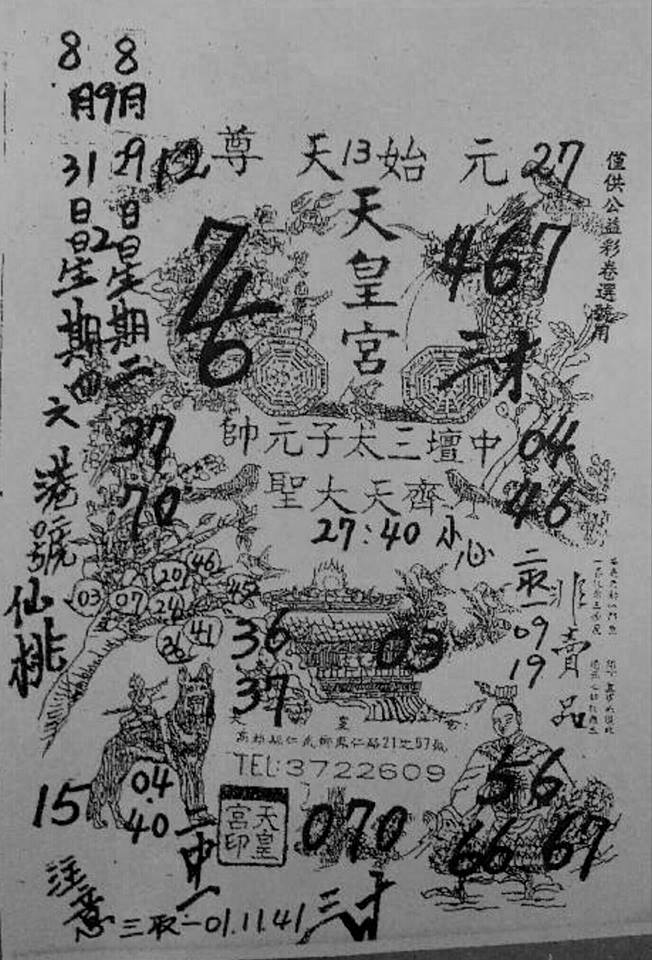 8月31日星期四
8月29日星期二
9
2
六港號
仙桃
僅供公益彩卷選號用
元始天尊
12
13
27
天皇宮
7
6
467
三才
中壇三太子元帥
齊天大聖
37
70
04
46
27:40 小心
二取一
09
19
非賣品
20
46
45
03
07
24
36
41
36
37
03
TEL:3722609
15
04.
40
二中一
天皇宮印
070
56
66
67
注意
三取一01.11.41
三才